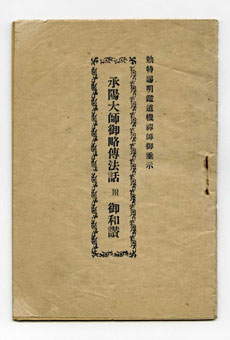 勅特賜明鑑道機禪師御垂示
承陽大師御略傳法話 附 御和讃